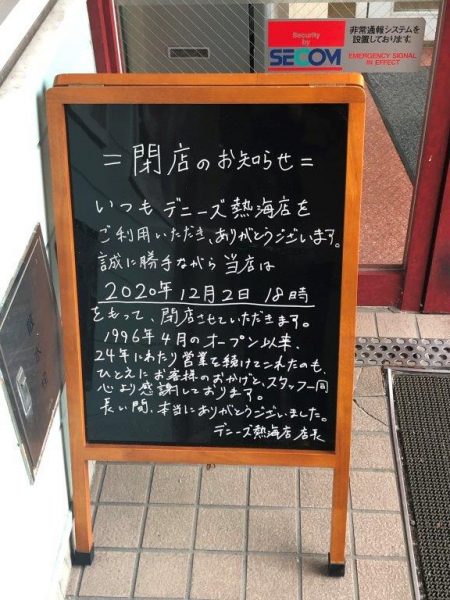 Security
by
SECOM
非常通報システムを
設置しております。
EMERGENCY SIGNAL
IN EFFECT
=閉店のお知らせ=
いつもデニーズ熱海店を
ご利用いただき、ありがとうございます。
誠に勝手ながら当店は
2020年12月2日 18時
をもって、閉店させていただきます。
1996年4月のオープン以来、
24年にわたり営業を続けてこれたのも、
ひとえにお客様のおかげと、スタッフ一同
心より感謝しております。
長い間、本当にありがとうございました。
デニーズ熱海店 店長